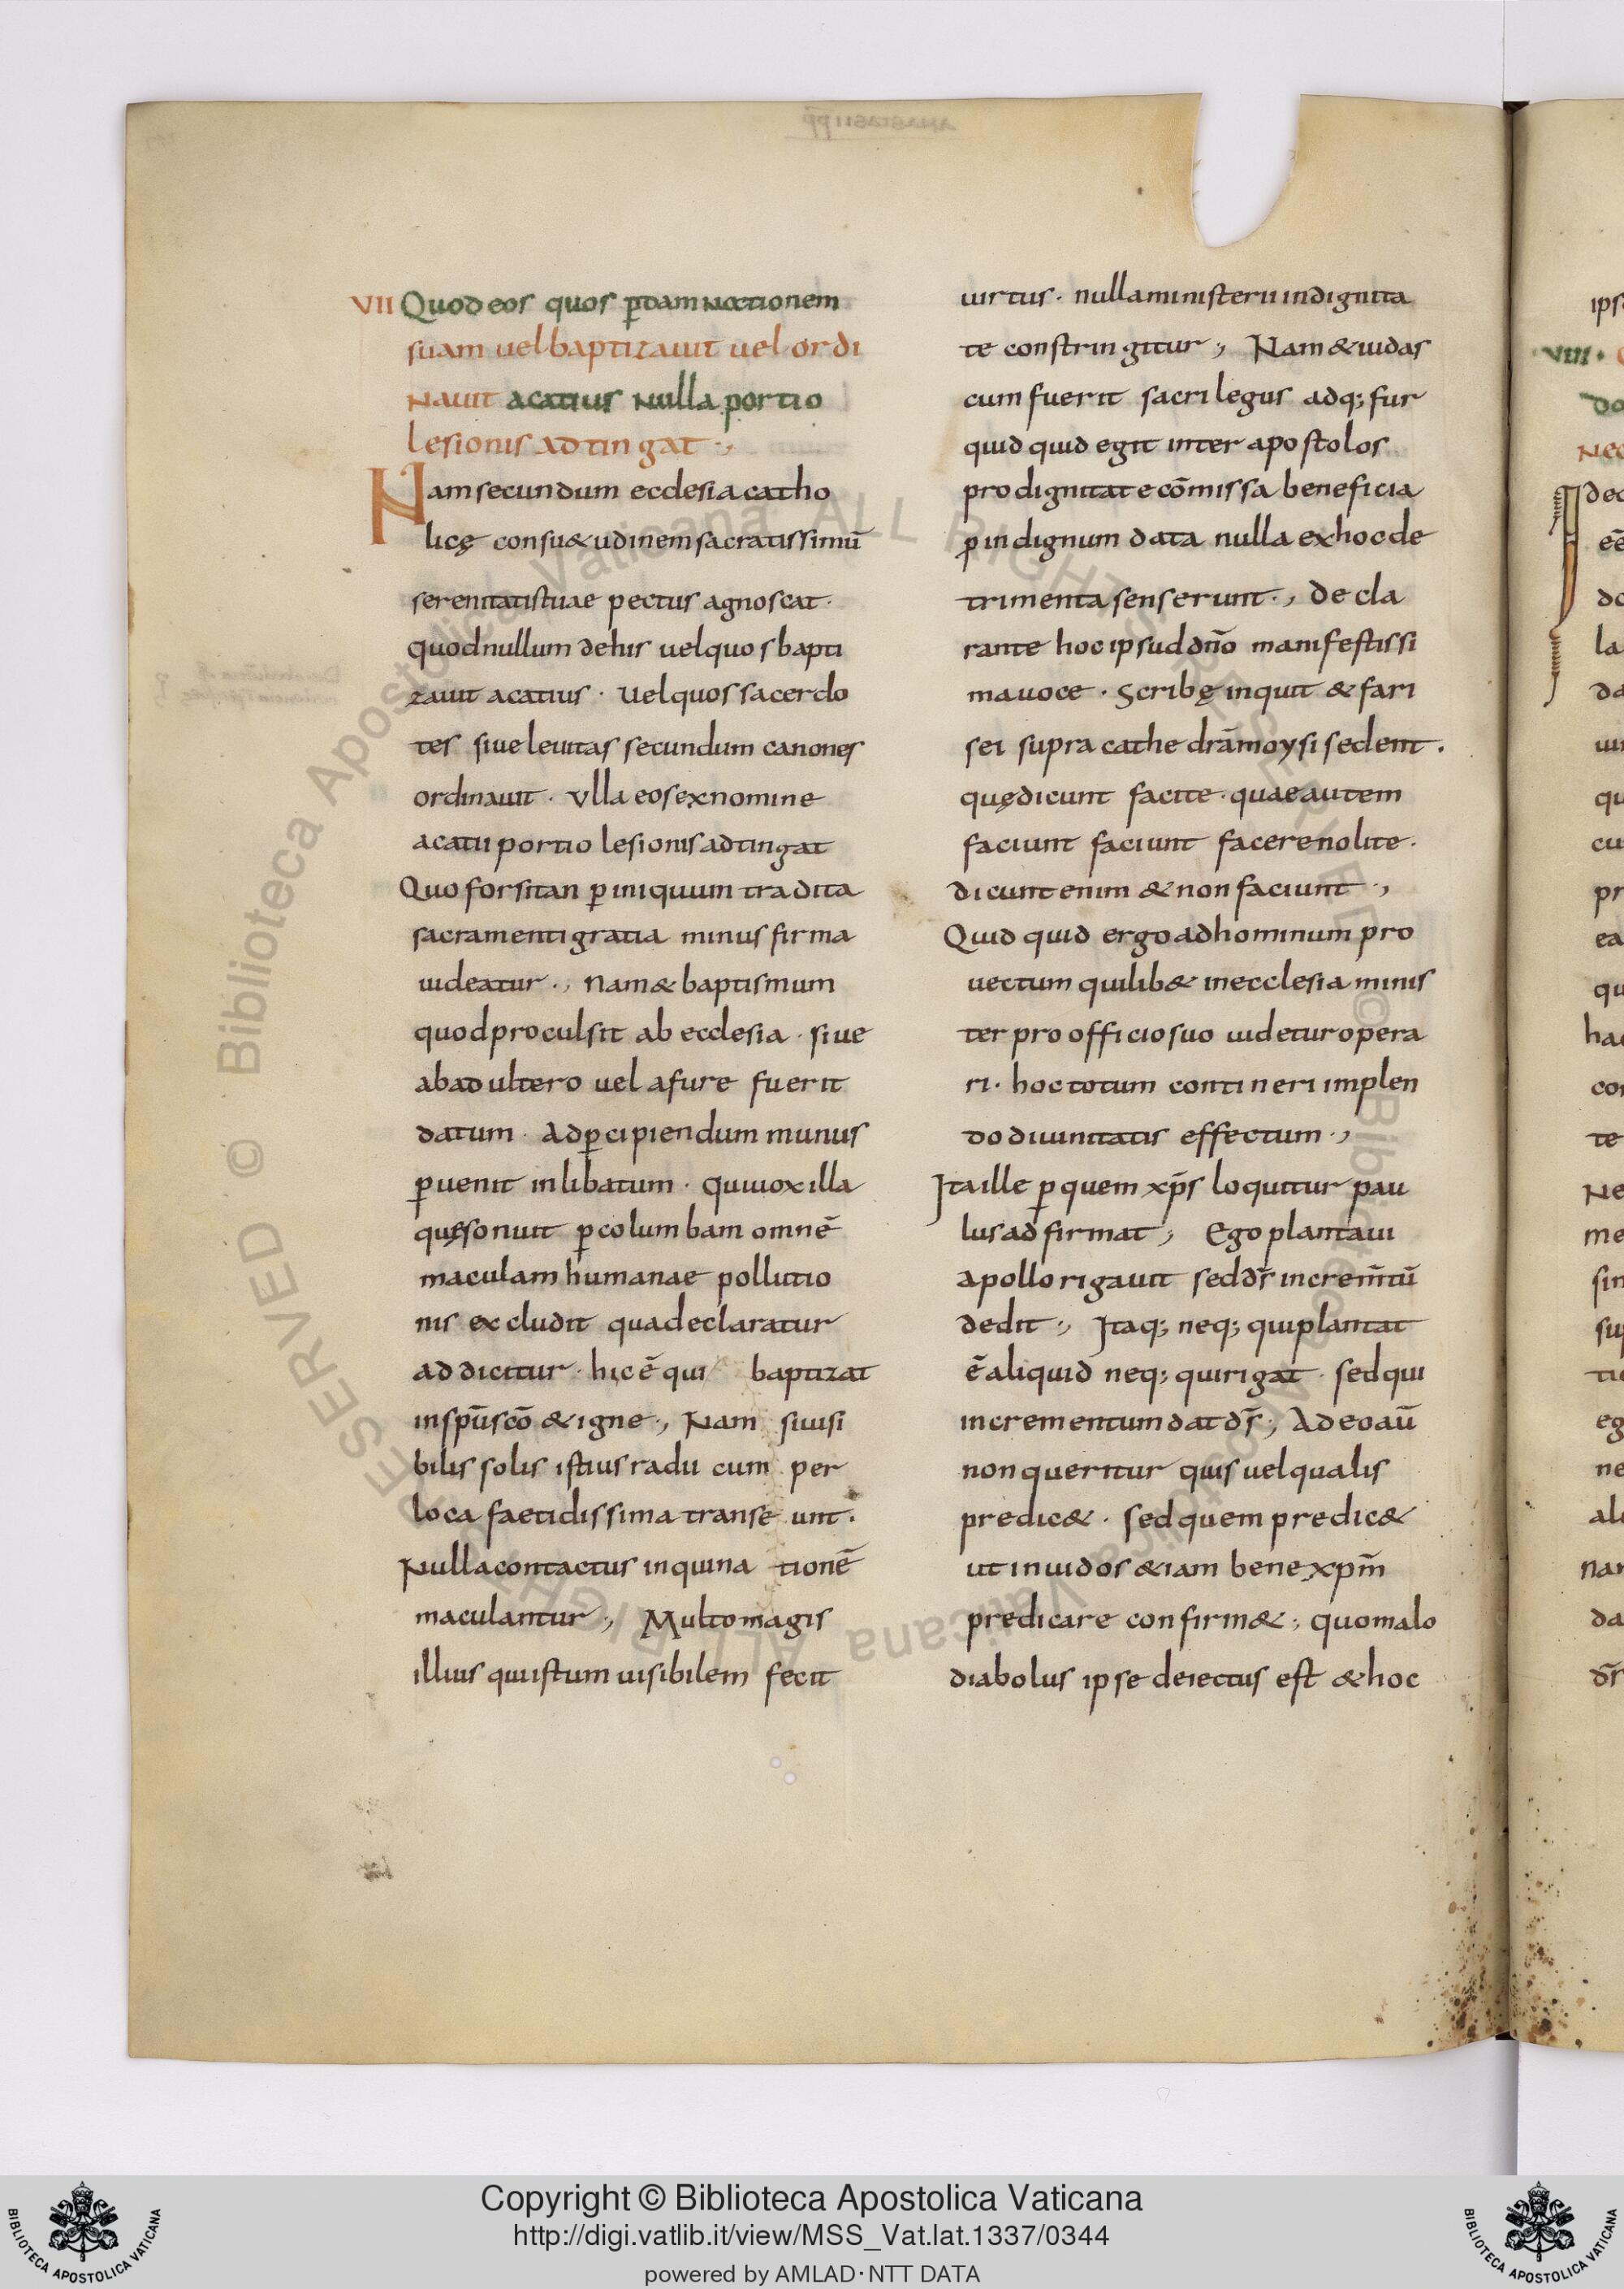 VII Quod eos quos p̱ damnactionem
suam uel baptizauit uel ordi
nauit acatius nulla portio
lesionis adtingat ·,
Nam secundum ecclesia catho
licę consu&udinem sacratissimū
serenitatis tuae pectus agnoscat ·
quod nullum de his uel quos bapti
zauit acatius · uel quos sacerdo
tes siue leuitas secundum canones
ordinauit · Vlla eos ex nomine
acatii portio lesionis adtingat
Quo forsitan p̱ iniquum tradita
sacramenti gratia minus firma
uideatur ·, nam & baptismum
quod procul sit ab ecclesia · siue
ab adultero uel a fure fuerit
datum · Ad p̱cipiendum munus
p̱uenit inlibatum · quia uox illa
quę sonuit p̱ columbam omnē
maculam humanae pollutio
nis excludit qua declaratur
ad dicitur · hic ē qui baptizat
in sp̄u sc̄o & igne ·, Nam si uisi
bilis solis istius radii cum per
loca faetidissima transeunt ·
Nulla contactus inquinationē
maculantur ·, Multo magis
illius qui istum uisibilem fecit
uirtus · nulla ministerii indignita
te constringitur ·, Nam & iudas
cum fuerit sacrilegus adq; fur
quid quid egit inter apostolos
pro dignitate cōmissa beneficia
p̱ indignum data nulla ex hoc de
trimenta senserunt ·, Decla
rante hoc ipsud dn̄o manifestissi
ma uoce · Scribę inquit & fari
sei supra cathedrā moysi sedent ·
quę dicunt facite · quae autem
faciunt faciunt facere nolite ·
dicunt enim & non faciunt ·,
Quid quid ergo ad hominum pro
uectum quilib& in ecclesia minis
ter pro officio suo uidetur opera
ri · hoc totum contineri implen
do diuinitatis effectum ·,
Ita ille p̱ quem xp̄s loquitur pau
lus adfirmat ·, Ego plantaui
apollo rigauit sed ds̄ increm̄tū
dedit ·, Itaq; neq; qui plantat
ē aliquid neq; qui rigat · sed qui
incrementum dat ds̄ ·, Adeo aū
non queritur quis uel qualis
predic& · sed quem predic&
ut inuidos &iam bene xpm̄
predicare confirm& ·, quo malo
diabolus ipse deiectus est & hoc
VIII ·
Copyright © Biblioteca Apostolica Vaticana
http://digi.vatlib.it/view/MSS_Vat.lat.1337/0344
powered by AMLAD·NTT DATA